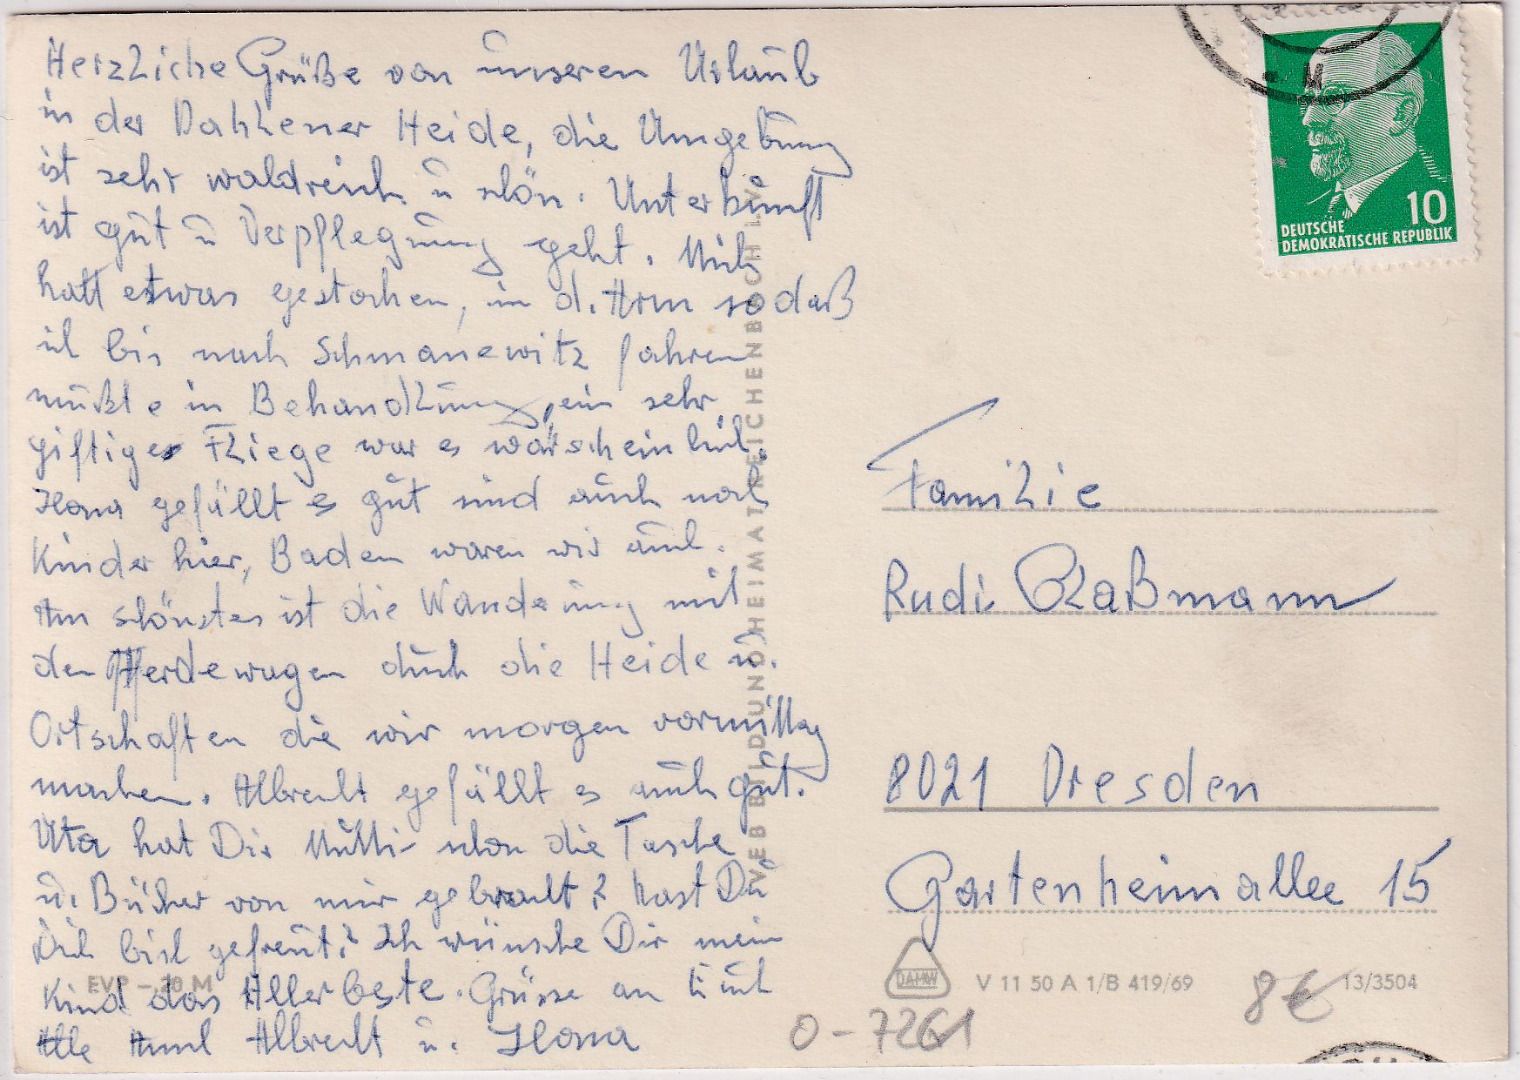 Herzliche Grüße von unseren Urlaub
in der Dahlener Heide, die Umgebung
ist sehr waldreich u schön. Unterkunft
ist gut u Verpflegung geht. Mich
hatt etwas gestochen, in d. Arm sodaß
ich bis nach Schmanewitz fahren
mußte in Behandlung, ein sehr
giftiges Fliege war es warscheinlich.
Ilona gefällt es gut sind auch noch
Kinder hier, Baden waren wir auch.
Am schönsten ist die Wanderung mit
den Pferdewagen durch die Heide u.
Ortschaften die wir morgen vormittag
machen. Albrecht gefällt es auch gut.
Uta hat Dir Mutti schon die Tasche
u. Bücher von mir gebracht? Hast Du
Dich bisl gefreut? Ich wünsche Dir mein
Kind das Allerbeste. Grüsse an Euch
Alle Albrecht u. Ilona
EVP -,20 M
VEB BILD UND HEIMAT REICHENBACH I. V.
M
10
DEUTSCHE
DEMOKRATISCHE REPUBLIK
Familie
Rudi
8021 Dresden
Gartenheimallee 15
DAMW
V 11 50 A 1/B 419/69
13/3504
8€
0-7261